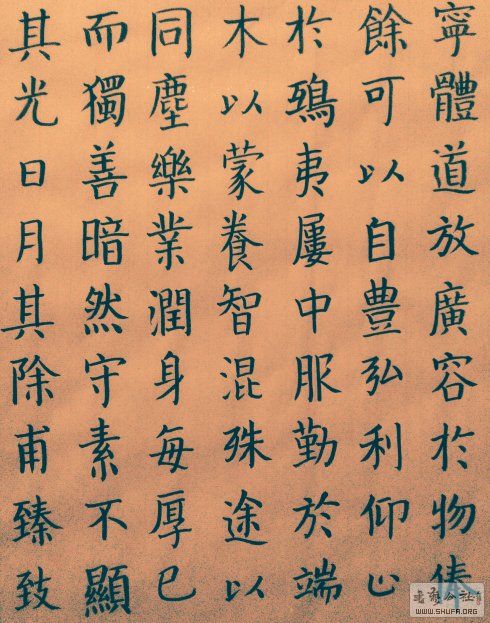 寧體道放廣容於物
餘可以自豐弘利仰止
於鵄夷屢中服勤於端
木以蒙養智混殊途以
同塵樂業潤身每厚己
而獨善暗然守素不顯
其光日月其除甫臻致
WWW.SHUFA.ORG